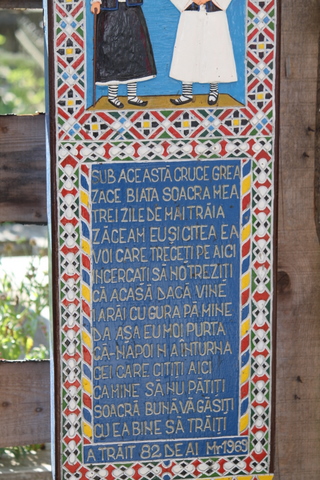 SUB ACEASTĂ CRUCE GREA
ZACE BIATA SOACRA MEA
TREI ZILE DE MAI TRĂIA
ZĂCEAM EU ȘI CITEA EA
VOI CARE TRECEȚI PE AICI
INCERCAȚI SĂ NO TREZIȚI
CĂ ACASĂ DACĂ VINE
IARĂI CU GURA PĂ MINE
DA AȘA EU MOI PURTA
CĂ-NAPOI N A ÎNTURNA
CEI CARE CITIȚI AICI
CA MINE SĂ NU PĂȚIȚI
SOACRĂ BUNĂ VĂ GĂSIȚI
CU EA BINE SĂ TRĂIȚI
A TRĂIT 82 DE AI Mr 1969